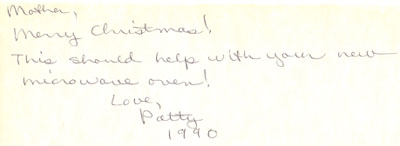 Mother,
Merry Christmas!
This should help with your new
microwave oven!
Love,
Patty
1990